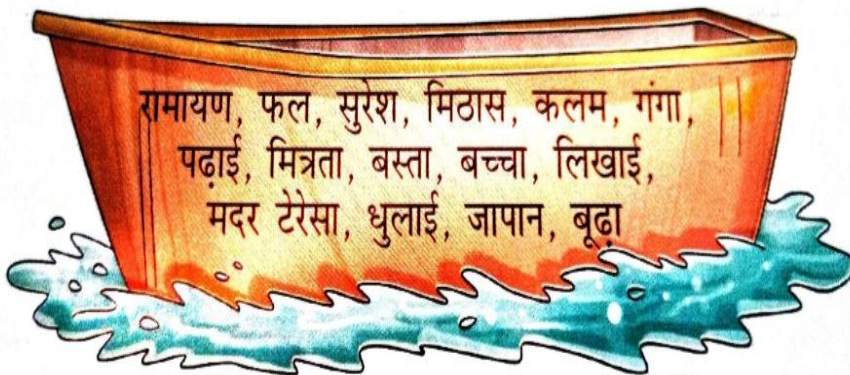 रामायण, फल, सुरेश, मिठास, कलम, गंगा,
पढ़ाई, मित्रता, बस्ता, बच्चा, लिखाई,
मदर टेरेसा, धुलाई, जापान, बूढ़ा